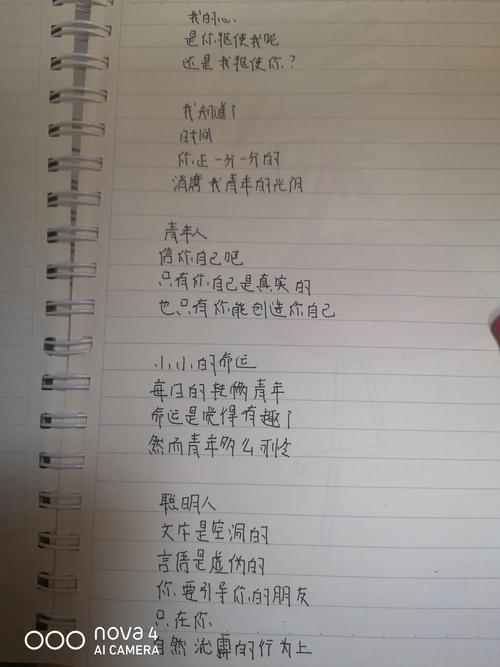 我的心
是你驱使我呢
还是我驱使你？
我知道了
时间
你正一分一分的
消磨我青年的光阴
青年人
信你自己吧
只有你自己是真实的
也只有你能创造你自己
小小的命运
每日的转移青年
命运是觉得有趣了
然而青年多么可怜
聪明人
文字是空洞的
言语是虚伪的
你要引导你的朋友
只在你
自然流露的行为上
nova 4
AI CAMERA